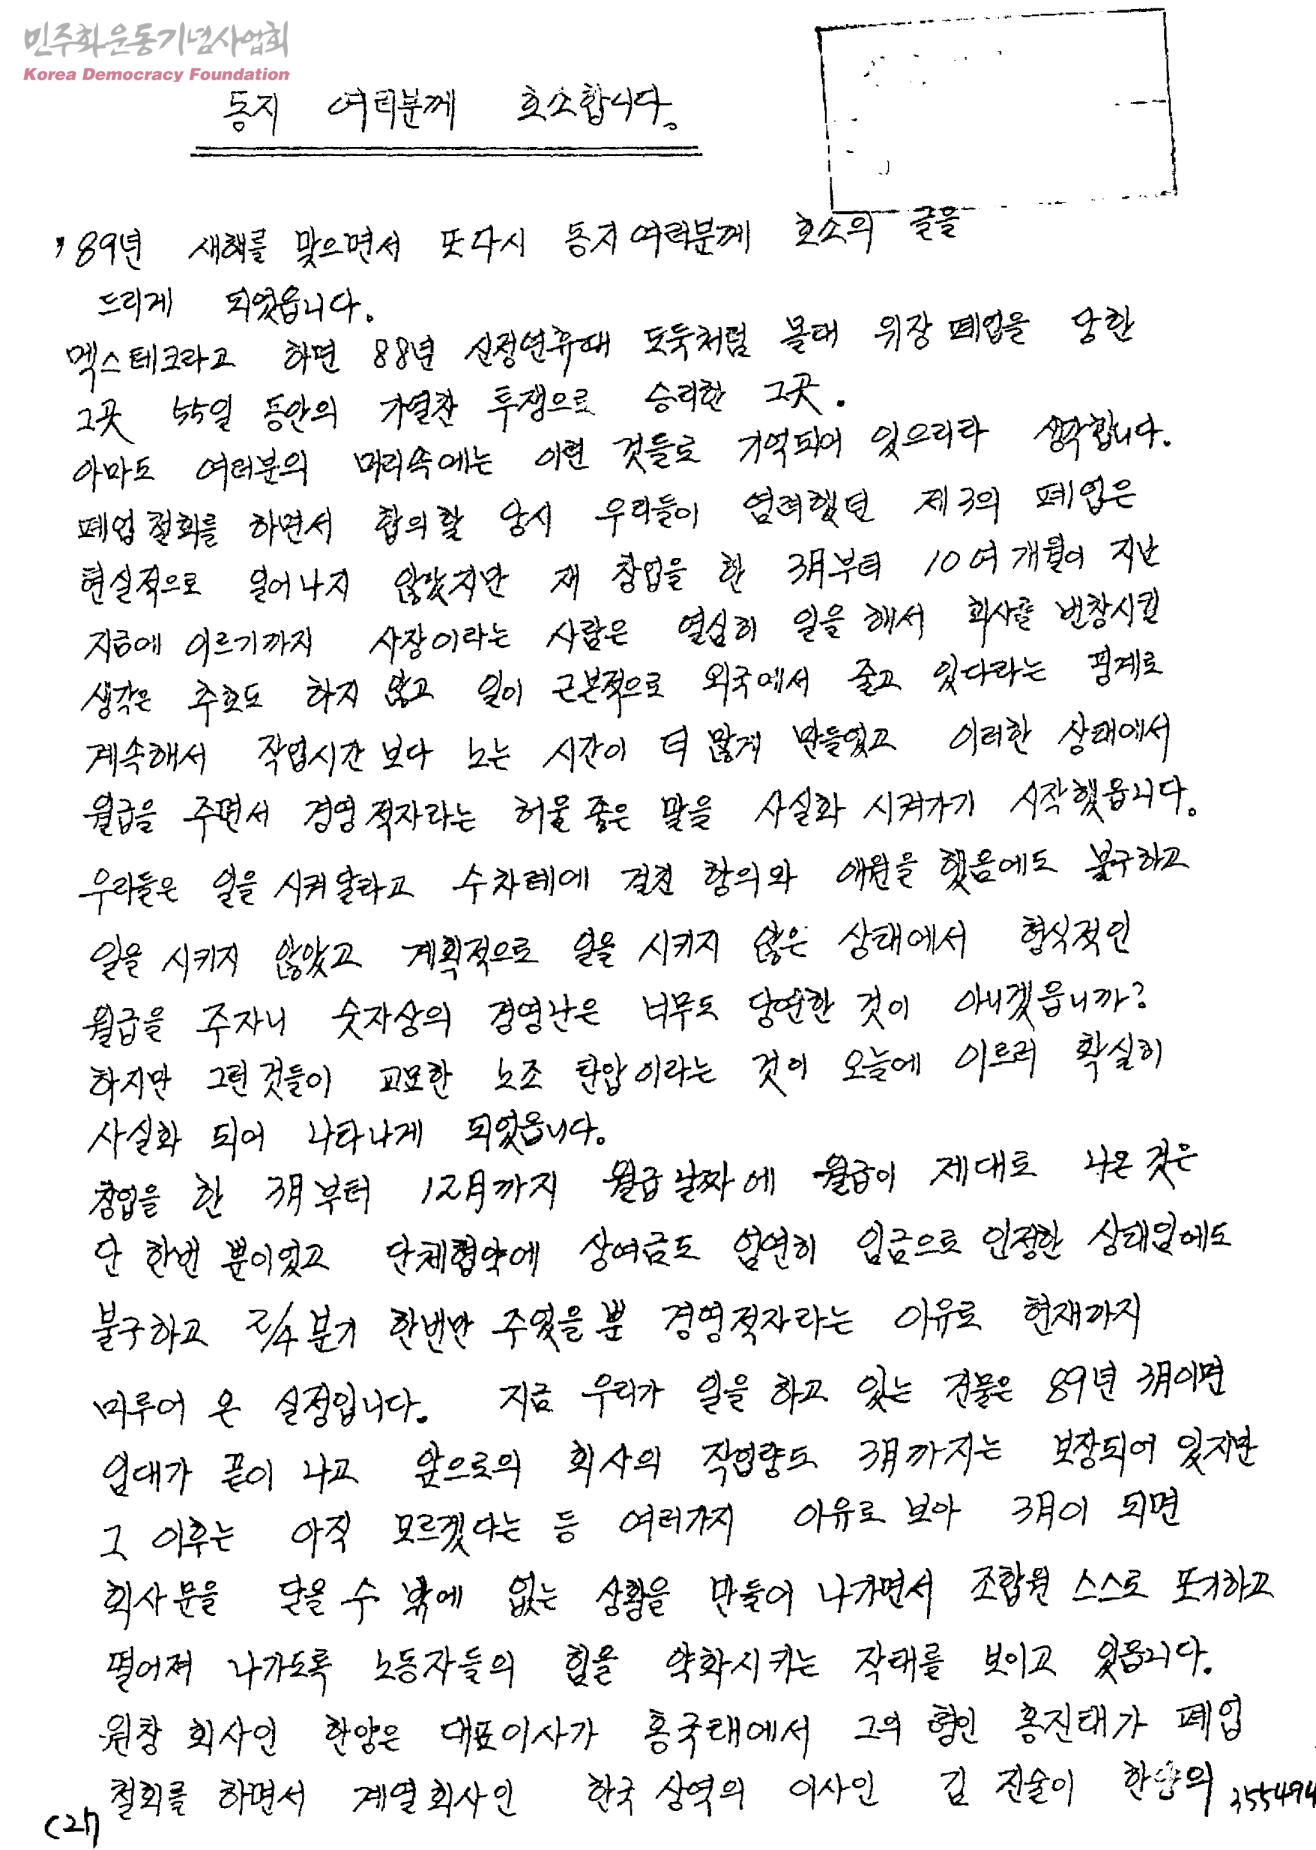 민주화운동기념사업회
Korea Democracy Foundation
동지 여러분께 호소합니다.
'89년 새해를 맞으면서 또다시 동지여러분께 호소의 글을
드리게 되었읍니다.
멕스테크라고 하면 88년 신정연휴때 도둑처럼 몰래 위장 폐업을 당한
그곳 55일 동안의 가열찬 투쟁으로 승리한 그곳.
아마도 여러분의 머리속에는 이런 것들로 기억되어 있으리라 생각합니다.
폐업철회를 하면서 합의할 당시 우리들이 염려했던 제3의 폐업은
현실적으로 일어나지 않았지만 재 창업을 한 3月부터 10여개월이 지난
지금에 이르기까지 사장이라는 사람은 열심히 일을 해서 회사를 번창시킬
생각은 추호도 하지 않고 일이 근본적으로 외국에서 줄고 있다라는 핑계로
계속해서 작업시간 보다 노는 시간이 더 많게 만들었고 이러한 상태에서
월급을 주면서 경영적자라는 허울좋은 말을 사실화 시켜가기 시작했읍니다.
우리들은 일을 시켜달라고 수차례에 걸친 항의와 애원을 했음에도 불구하고
일을 시키지 않았고 계획적으로 일을 시키지 않은 상태에서 형식적인
월급을 주자니 숫자상의 경영난은 너무도 당연한 것이 아니겠읍니까?
하지만 그런것들이 교묘한 노조 탄압이라는 것이 오늘에 이르러 확실히
사실화 되어 나타나게 되었읍니다.
창업을 한 3月부터 12月까지 월급날짜에 월급이 제대로 나온 것은
단 한번 뿐이었고 단체협약에 상여금도 엄연히 임금으로 인정한 상태임에도
불구하고 2/4분기 한번만 주었을뿐 경영적자라는 이유로 현재까지
미루어 온 실정입니다. 지금 우리가 일을 하고 있는 건물은 89년 3月이면
임대가 끝이 나고 앞으로의 회사의 작업량도 3月까지는 보장되어 있지만
그 이후는 아직 모르겠다는 등 여러가지 이유로 보아 3月이 되면
회사문을 닫을 수 밖에 없는 상황을 만들어 나가면서 조합원 스스로 포기하고
떨어져 나가도록 노동자들의 힘을 약화시키는 작태를 보이고 있읍니다.
원창 회사인 한양은 대표이사가 홍국태에서 그의 형인 홍진태가 폐업
철회를 하면서 계열회사인 한국 상역의 이사인 김진술이 한양의
355494
(21)